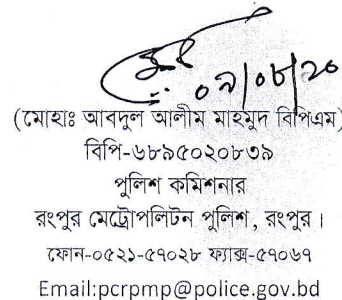 ০৯/০৮/২০
(মোহাঃ আবদুল আলীম মাহমুদ বিপিএম)
বিপি-৬৮৯৫০২০৮৩৯
পুলিশ কমিশনার
রংপুর মেট্রোপলিটন পুলিশ, রংপুর।
ফোন-০৫২১-৫৭০২৮ ফ্যাক্স-৫৭০৬৭
Email:pcrpmp@police.gov.bd